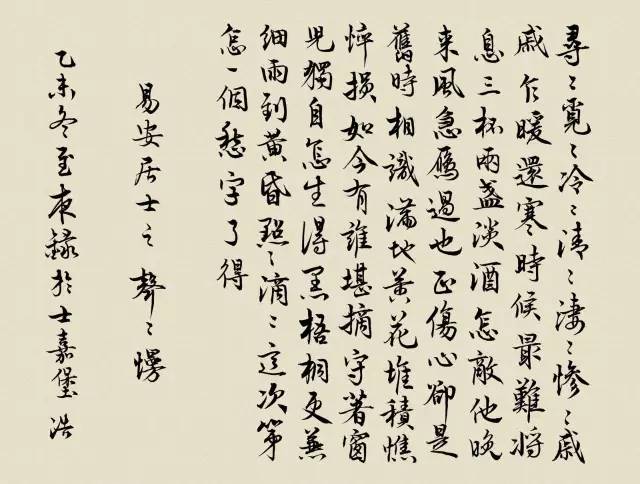 尋〻覓〻冷〻清〻淒〻慘〻戚
戚乍暖還寒時候最難將
息三杯兩盞淡酒怎敵他晚
来風急雁過也正傷心卻是
舊時相識滿地黃花堆積憔
悴損如今有誰堪摘守著窗
兒獨自怎生得黑梧桐更兼
細雨到黃昏點〻滴〻這次第
怎一個愁字了得
易安居士之聲〻慢
乙未冬至夜錄於士嘉堡 浩